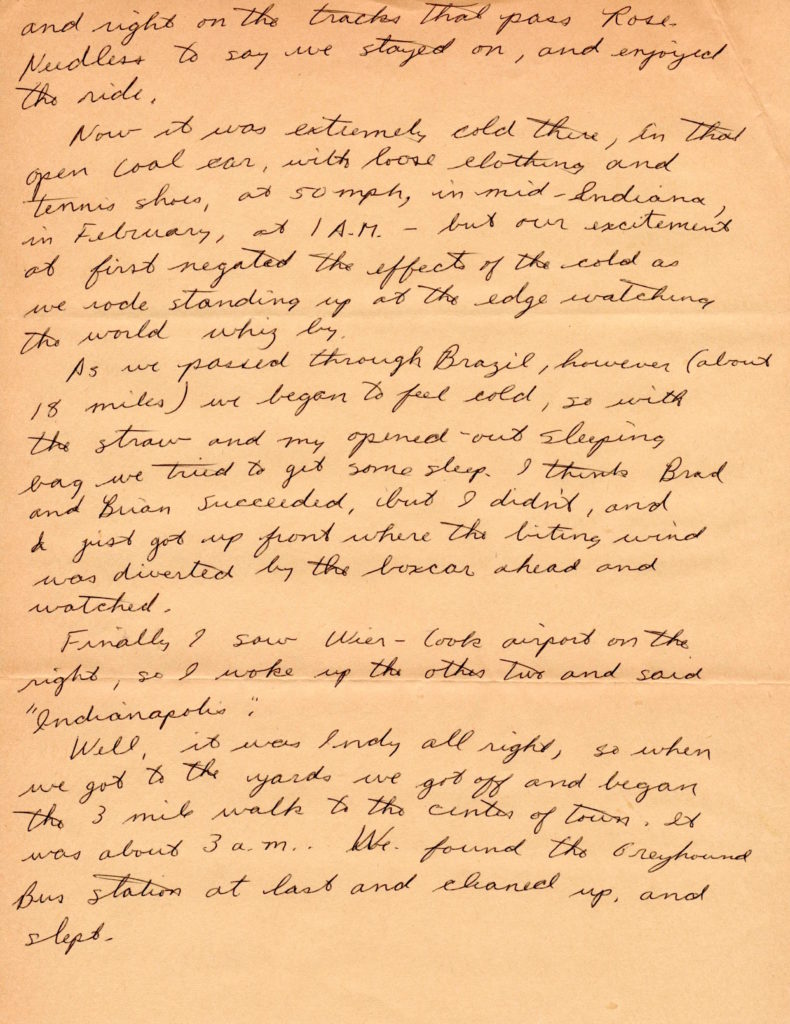 and right on the tracks that pass Rose.
Needless to say we stayed on, and enjoyed
the ride.
Now it was extremely cold there, in that
open coal car, with loose clothing and
tennis shoes, at 50 mph, in mid-Indiana,
in February, at 1 A.M. - but our excitement
at first negated the effects of the cold as
we rode standing up at the edge watching
the world whiz by.
As we passed through Brazil, however (about
18 miles) we began to feel cold, so with
the straw and my opened-out sleeping
bag we tried to get some sleep. I think Brad
and Brian succeeded, but I didn't, and
I just got up front where the biting wind
was diverted by the boxcar ahead and
watched.
Finally I saw Wier-Cook airport on the
right, so I woke up the other two and said
"Indianapolis".
Well, it was Indy all right, so when
we got to the yards we got off and began
the 3 mile walk to the center of town. It
was about 3 a.m.. We found the Greyhound
Bus station at last and cleaned up, and
slept.